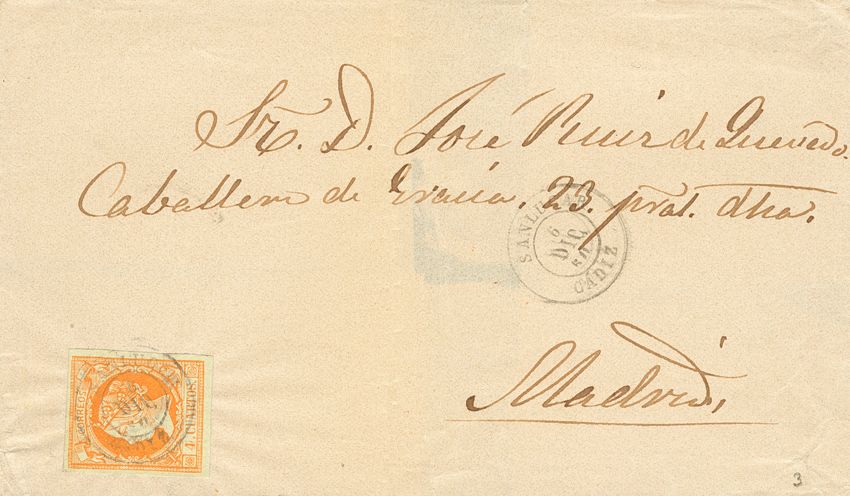 Sr. D. José Ruiz de Quevedo.
Caballero de Gracia. 23. pral. dha.
SANLUCAR
6
DIC
CADIZ
Madrid,
CORREOS
4 CUARTOS
3